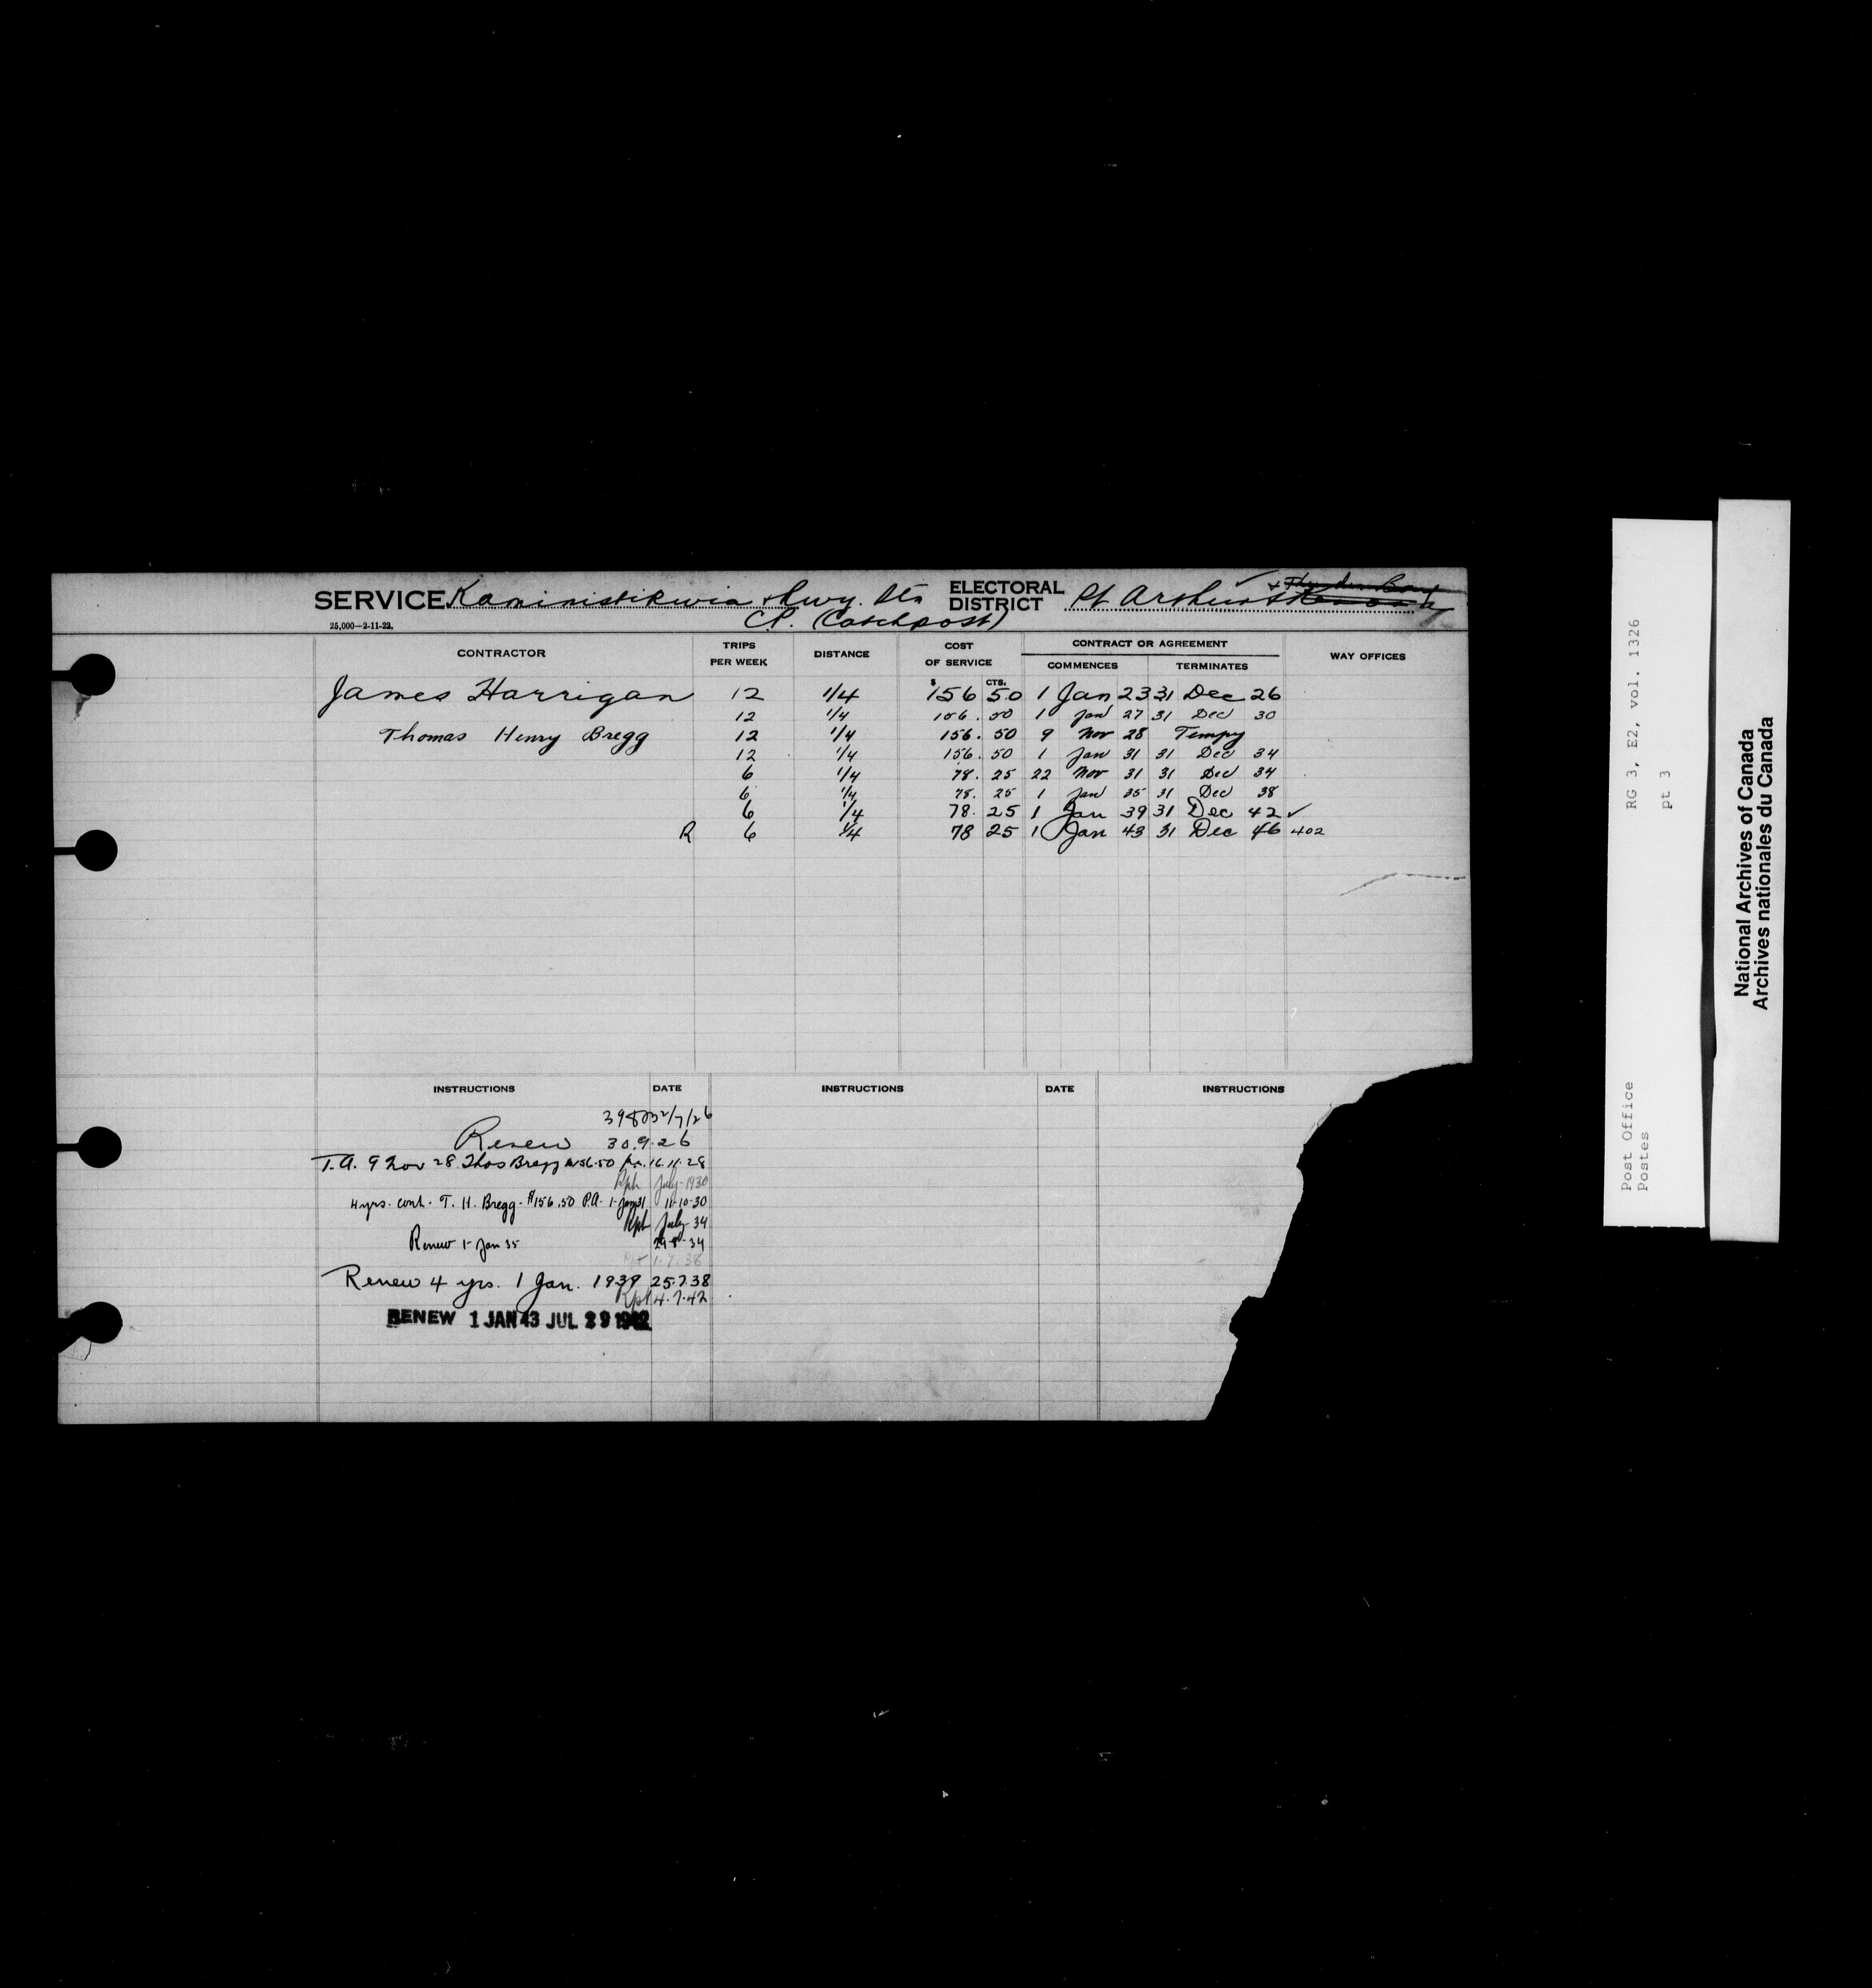 SERVICE Kaministikwia & Rwy. Stn ELECTORAL DISTRICT Pt Arthur
C.P. (Catchpost)
25,000—2-11-22.
CONTRACTOR TRIPS PER WEEK DISTANCE COST OF SERVICE CONTRACT OR AGREEMENT WAY OFFICES
COMMENCES TERMINATES
$ CTS.
James Harrigan 12 1/4 156 50 1 Jan 23 31 Dec 26
12 1/4 156. 50 1 Jan 27 31 Dec 30
Thomas Henry Bregg 12 1/4 156. 50 9 Nov 28 Tempy
12 1/4 156. 50 1 Jan 31 31 Dec 34
6 1/4 78. 25 22 Nov 31 31 Dec 34
6 1/4 78. 25 1 Jan 35 31 Dec 38
6 1/4 78. 25 1 Jan 39 31 Dec 42 ✓
R 6 1/4 78 25 1 Jan 43 31 Dec 46 402
INSTRUCTIONS DATE INSTRUCTIONS DATE INSTRUCTIONS
2/7/26
Renew 30.9.26
T.A. 9 Nov 28 Thos Bregg 156.50 p.a. 16.11.28
Rpt July-1930
4 yrs. cont. T. H. Bregg. $156.50 P.A. 1-Jan 31 11-10-30
Rpt July-34
Renew 1-Jan 35 29-8-34
1.7.38
Renew 4 yrs. 1 Jan. 1939 25.7.38
Rpt 4.7.42
RENEW 1 JAN 43 JUL 29 1942
RG 3, E2, vol. 1326
pt 3
Post Office
Postes
National Archives of Canada
Archives nationales du Canada